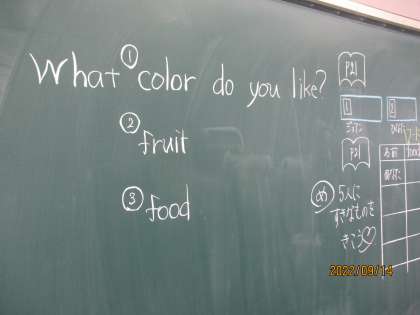 What ① color do you like?
② fruit
③ food
P21
1
2
P21
名前
food
め 5人に
すきなものを
きこう♡
2022/09/14